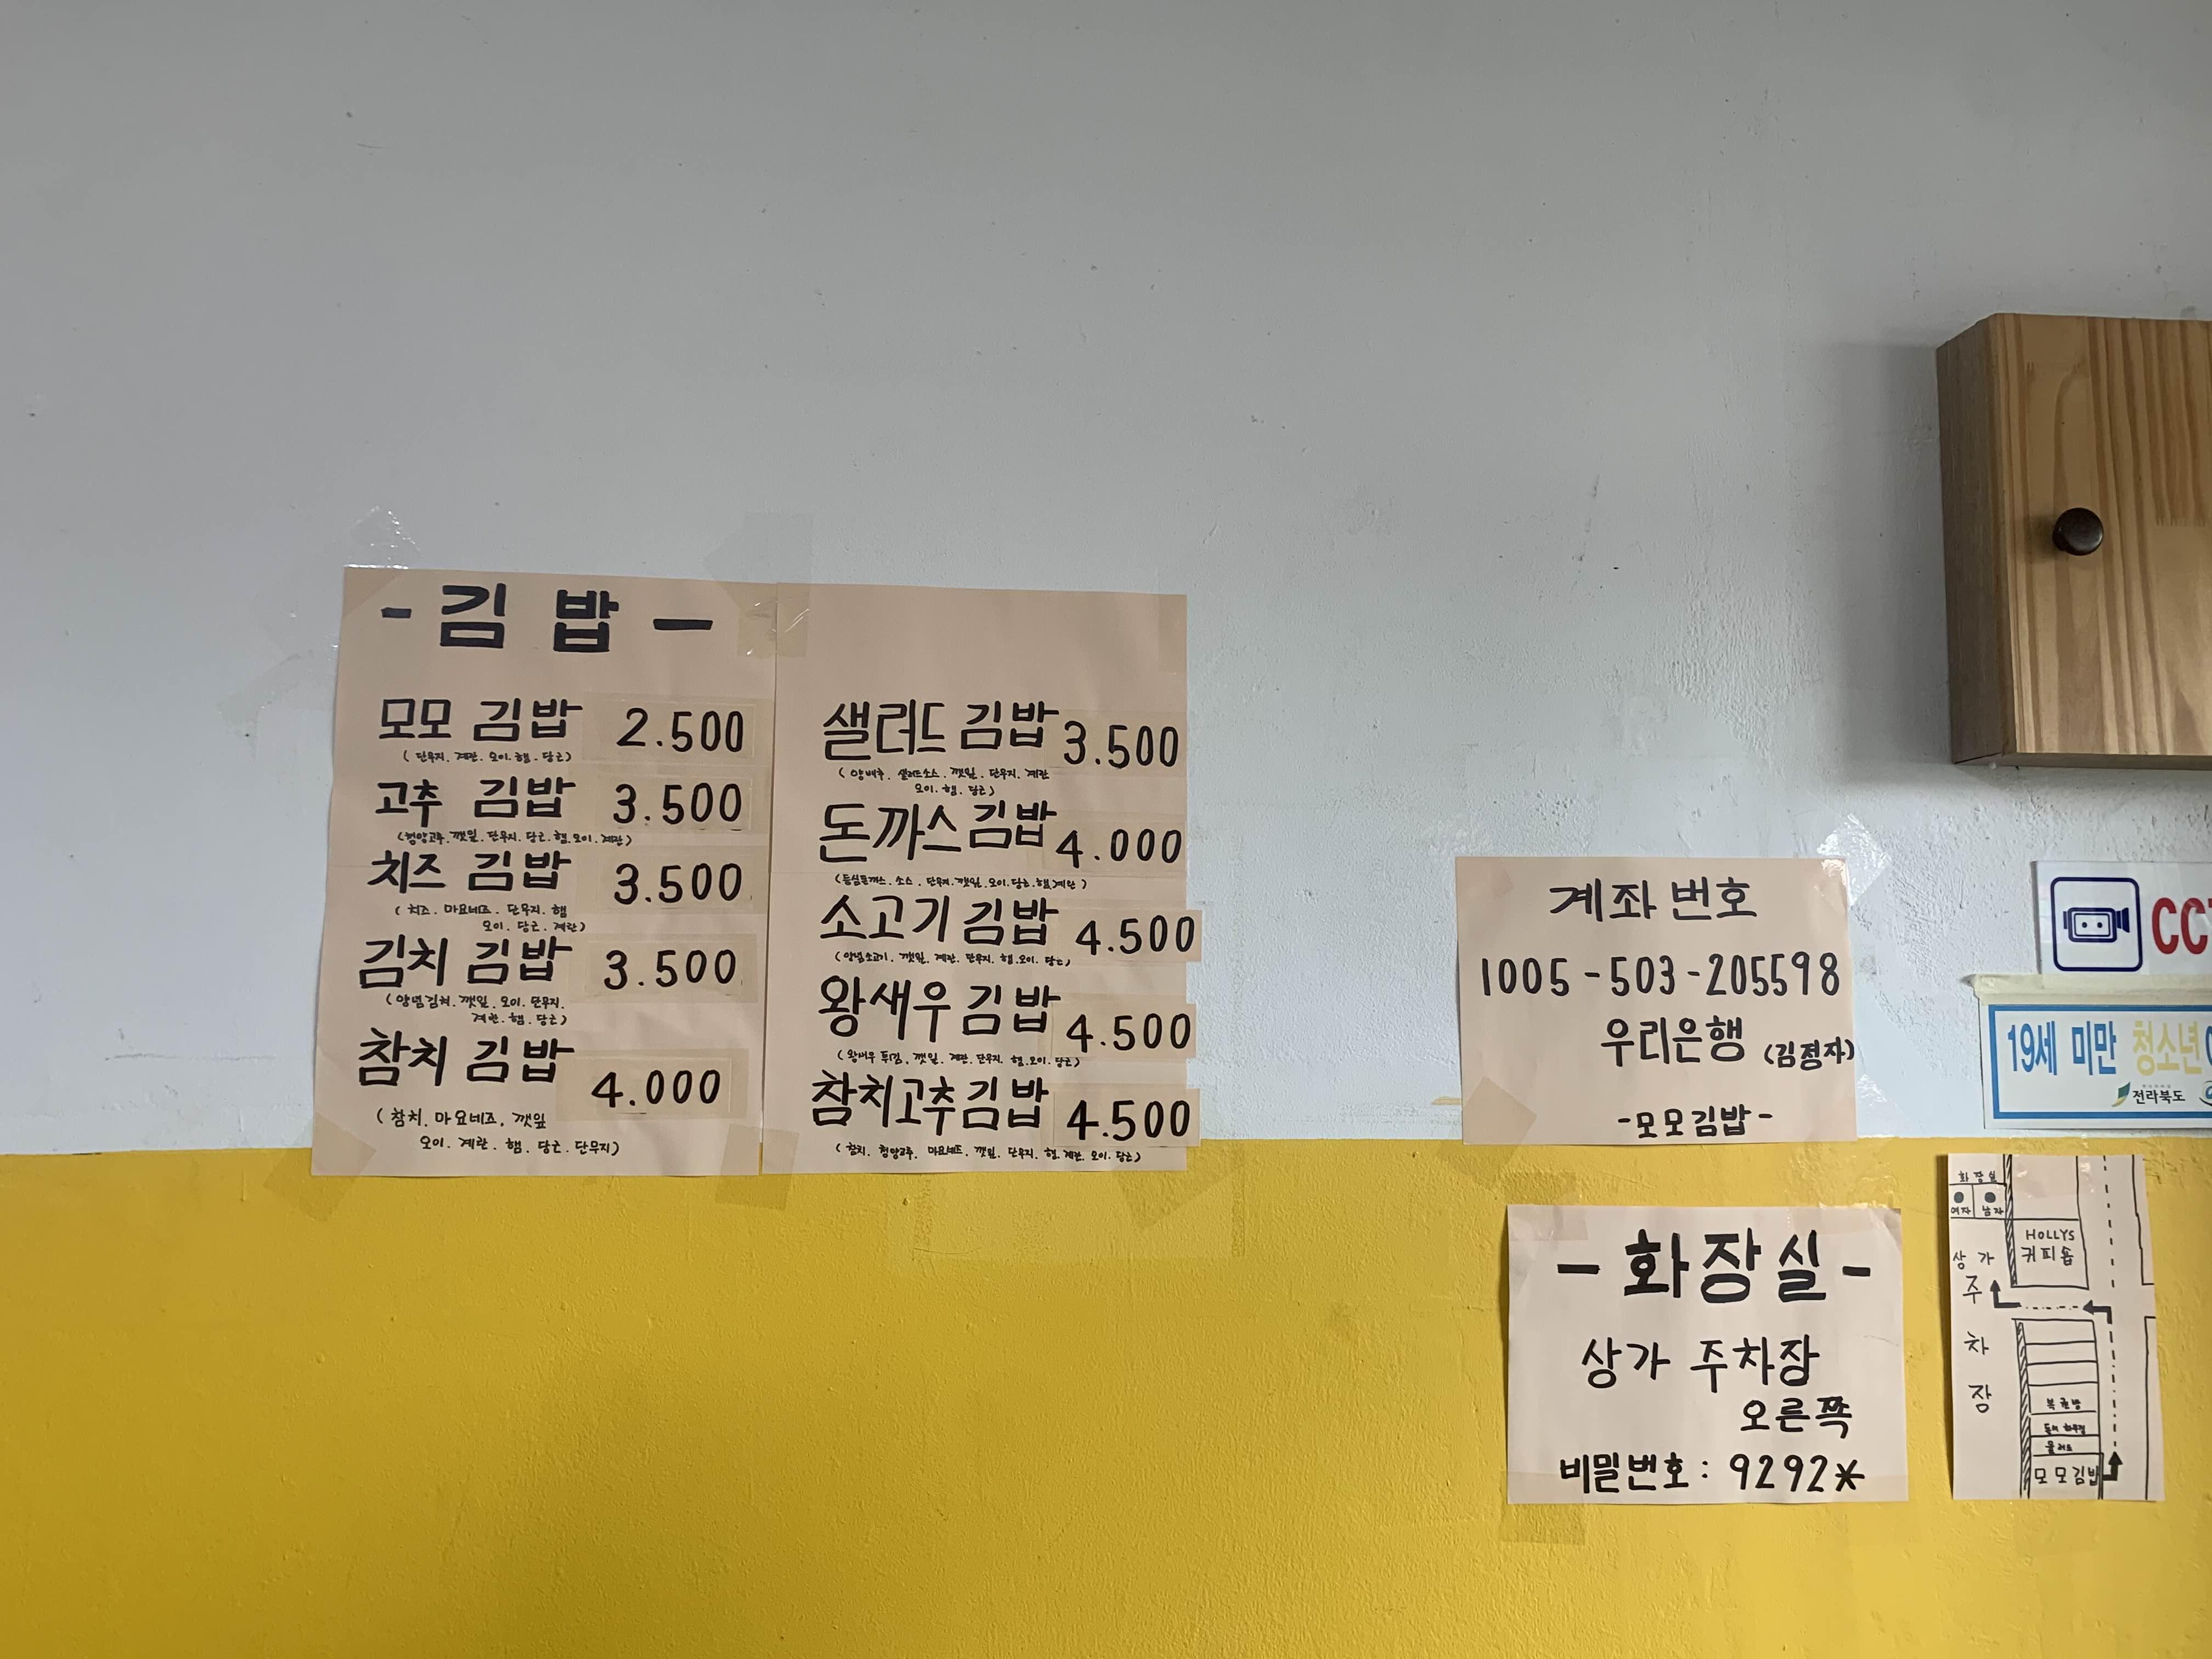 - 김밥 -
모모 김밥 2.500
(단무지. 계란. 오이. 햄. 당근)
고추 김밥 3.500
(청양고추. 깻잎. 단무지. 당근. 햄. 오이. 계란)
치즈 김밥 3.500
(치즈. 마요네즈. 단무지. 햄
오이. 당근. 계란)
김치 김밥 3.500
(양념김치. 깻잎. 오이. 단무지.
계란. 햄. 당근)
참치 김밥 4.000
(참치. 마요네즈. 깻잎
오이. 계란. 햄. 당근. 단무지)
샐러드 김밥 3.500
(양배추. 샐러드소스. 깻잎. 단무지. 계란
오이. 햄. 당근)
돈까스김밥 4.000
(등심돈까스. 소스. 단무지. 깻잎. 오이. 당근. 햄. 계란)
소고기 김밥 4.500
(양념소고기. 깻잎. 계란. 단무지. 햄. 오이. 당근)
왕새우 김밥 4.500
(왕새우 튀김. 깻잎. 계란. 단무지. 햄. 오이. 당근)
참치고추김밥 4.500
(참치. 청양고추. 마요네즈. 깻잎. 단무지. 햄. 계란. 오이. 당근)
계좌번호
1005-503-205598
우리은행 (김정자)
-모모김밥-
CC
19세 미만 청소년
전라북도
-화장실-
상가 주차장
오른쪽
비밀번호: 9292*
화장실
여자 남자
HOLLYS
커피숍
상가
주
차
장
복권방
모모김밥